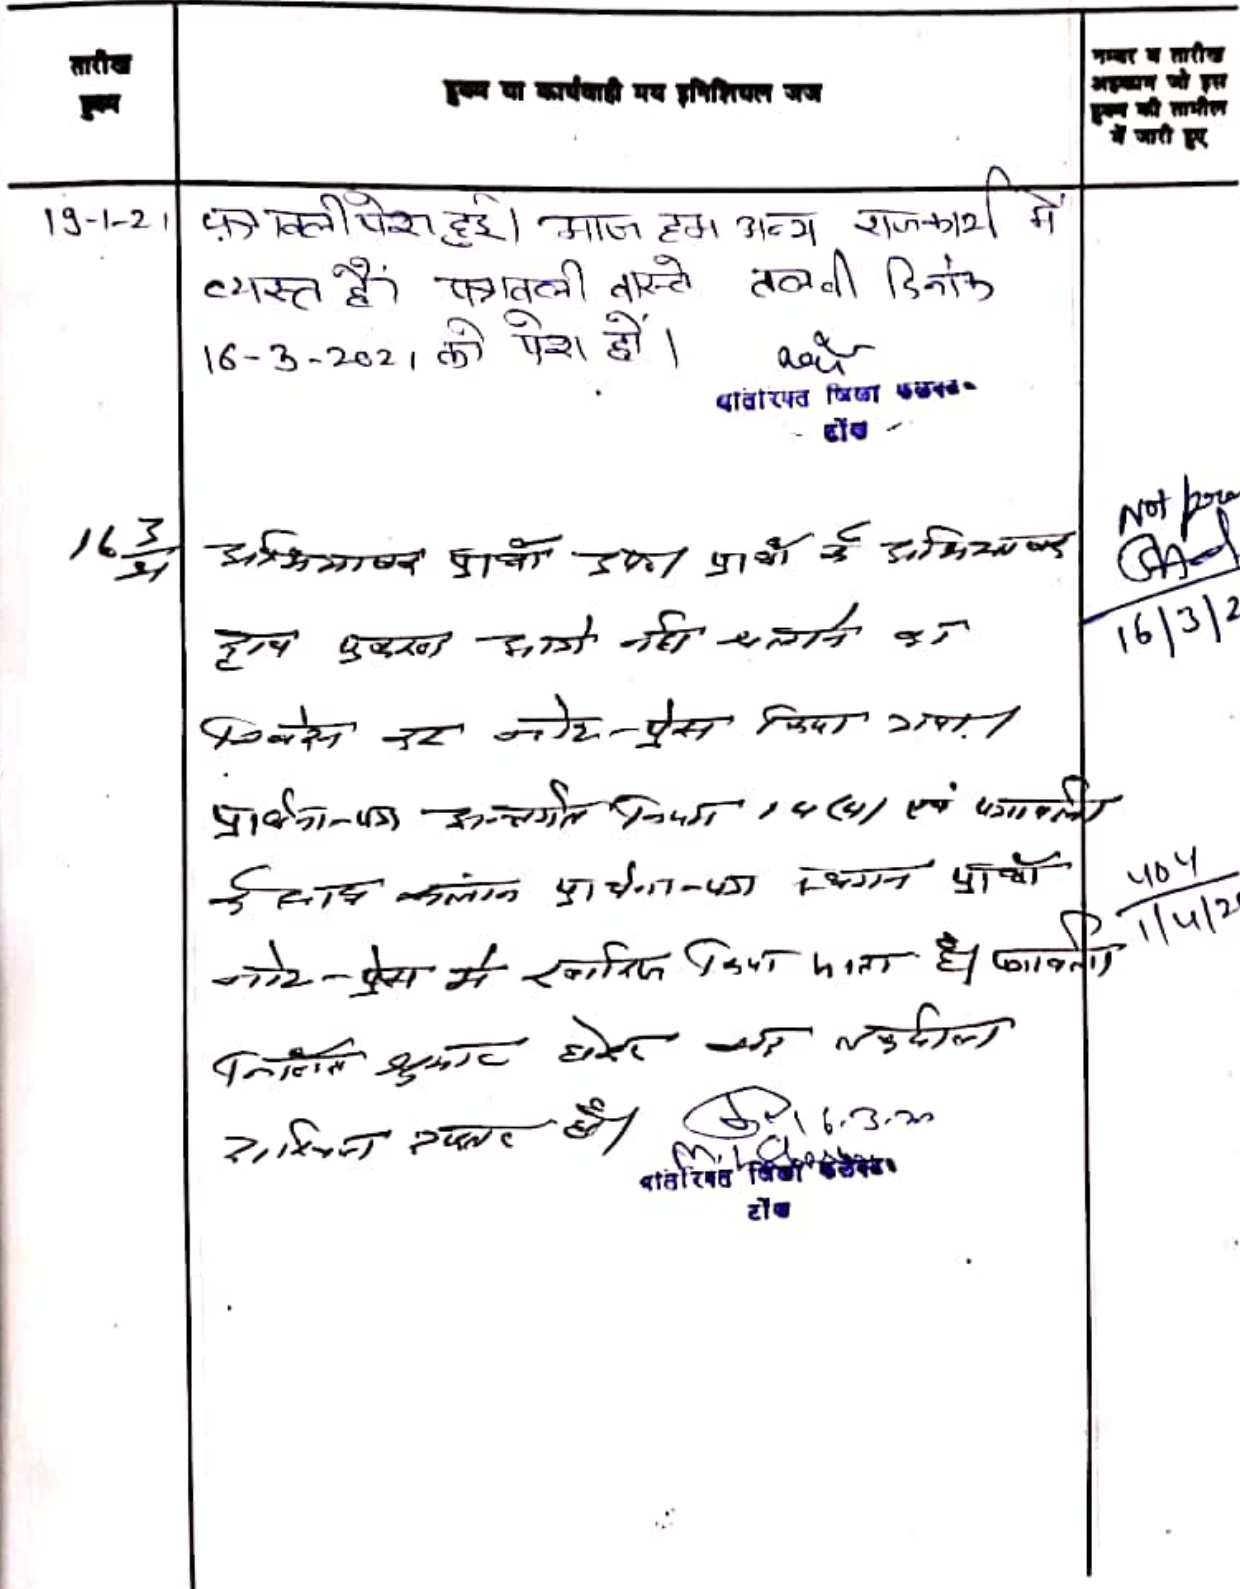 तारीख
हुक्म
हुक्म या कार्यवाही मय इनिशियल जज
नम्बर व तारीख
अहकाम जो इस
हुक्म की तामील
में जारी हुए
19-1-21 पत्रावली पेश हुई। आज हम अन्य राजकार्य में
व्यस्त हैं। पत्रावली वास्ते तलबी दिनांक
16-3-2021 को पेश हों।
अतिरिक्त जिला कलक्टर
टोंक
16 3/21 अभिभाषक प्रार्थी उप। प्रार्थी के अभिभाषक
द्वारा मुकदमा आगे नहीं चलाने का
निवेदन कर नोट-प्रेस किया गया।
प्रार्थना-पत्र अन्तर्गत नियम 14(4) एवं पत्रावली
के साथ संलग्न प्रार्थना-पत्र स्थगन प्रार्थी
नोट-प्रेस में खारिज किया जाता है। पत्रावली
शुमार होकर
दाखिल दफ्तर हो।
16.3.21
अतिरिक्त जिला कलेक्टर
टोंक
Not
16/3/2
404
1/4/2